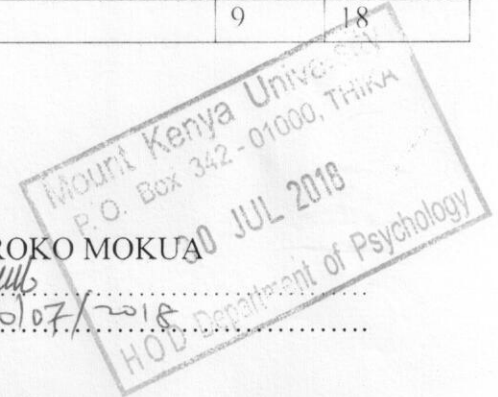 9 18
Mount Kenya University
P. O. Box 342 - 01000, THIKA
30 JUL 2018
HOD Department of Psychology
ROKO MOKUA
0/07/2018